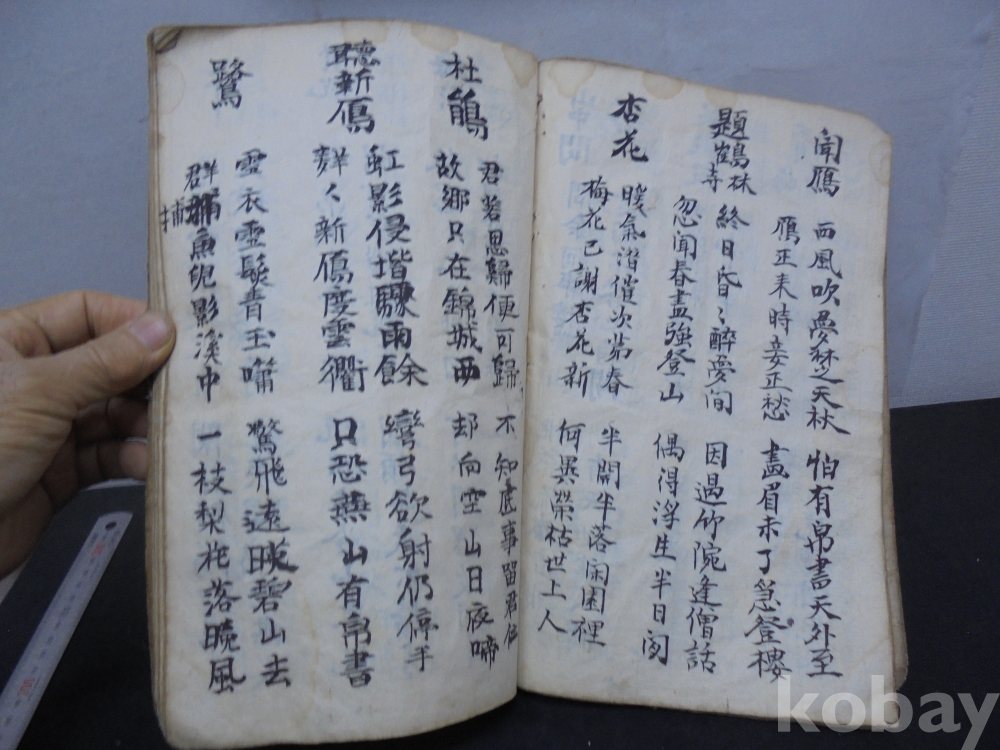 聞鴈
西風吹夢楚天秋
鴈正来時妾正愁
怕有帛書天外至
畵眉未了急登樓
題鶴林寺
終日昏〻醉夢間
忽聞春盡強登山
因過竹院逢僧話
偶得浮生半日閑
杏花
暖氣潛催次第春
梅花已謝杏花新
半開半落閑園裡
何異榮枯世上人
杜鵑
君若思歸便可歸
故鄉只在錦城西
不知底事留君住
却向空山日夜啼
聽新鴈
虹影侵堦驟雨餘
群〻新鴈度雲衢
彎弓欲射仍停手
只恐燕山有帛書
鷺
雪衣雪髮青玉嘴
群捕魚兒影溪中
捕
驚飛遠映碧山去
一枝梨花落晚風
kobay